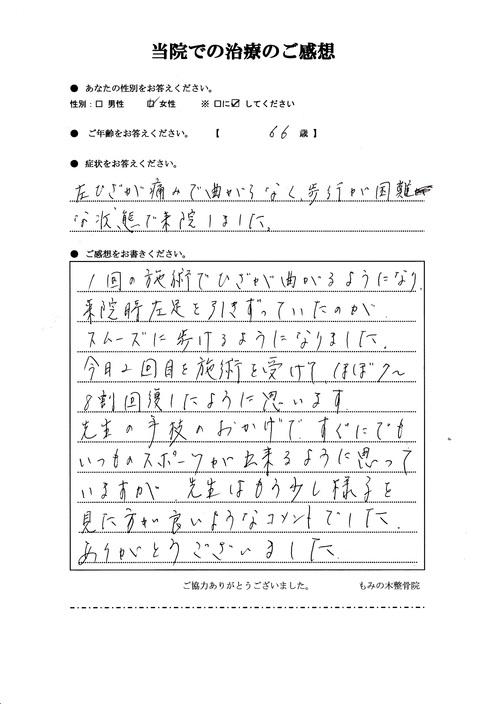 当院での治療のご感想
● あなたの性別をお答えください。
性別：□ 男性 ☑ 女性 ※ □に☑ してください
● ご年齢をお答えください。 【 66 歳】
● 症状をお答えください。
左ひざが痛みで曲がらなく、歩行が困難
な状態で来院しました。
● ご感想をお書きください。
1回の施術でひざが曲がるようになり、
来院時左足を引きずっていたのが
スムーズに歩けるようになりました。
今日2回目を施術を受けて、ほぼ7〜
8割回復したように思います。
先生の手技のおかげで、すぐにでも
いつものスポーツが出来るように思って
いますが、先生はもう少し様子を
見た方が良いようなコメントでした。
ありがとうございました。
ご協力ありがとうございました。 もみの木整骨院